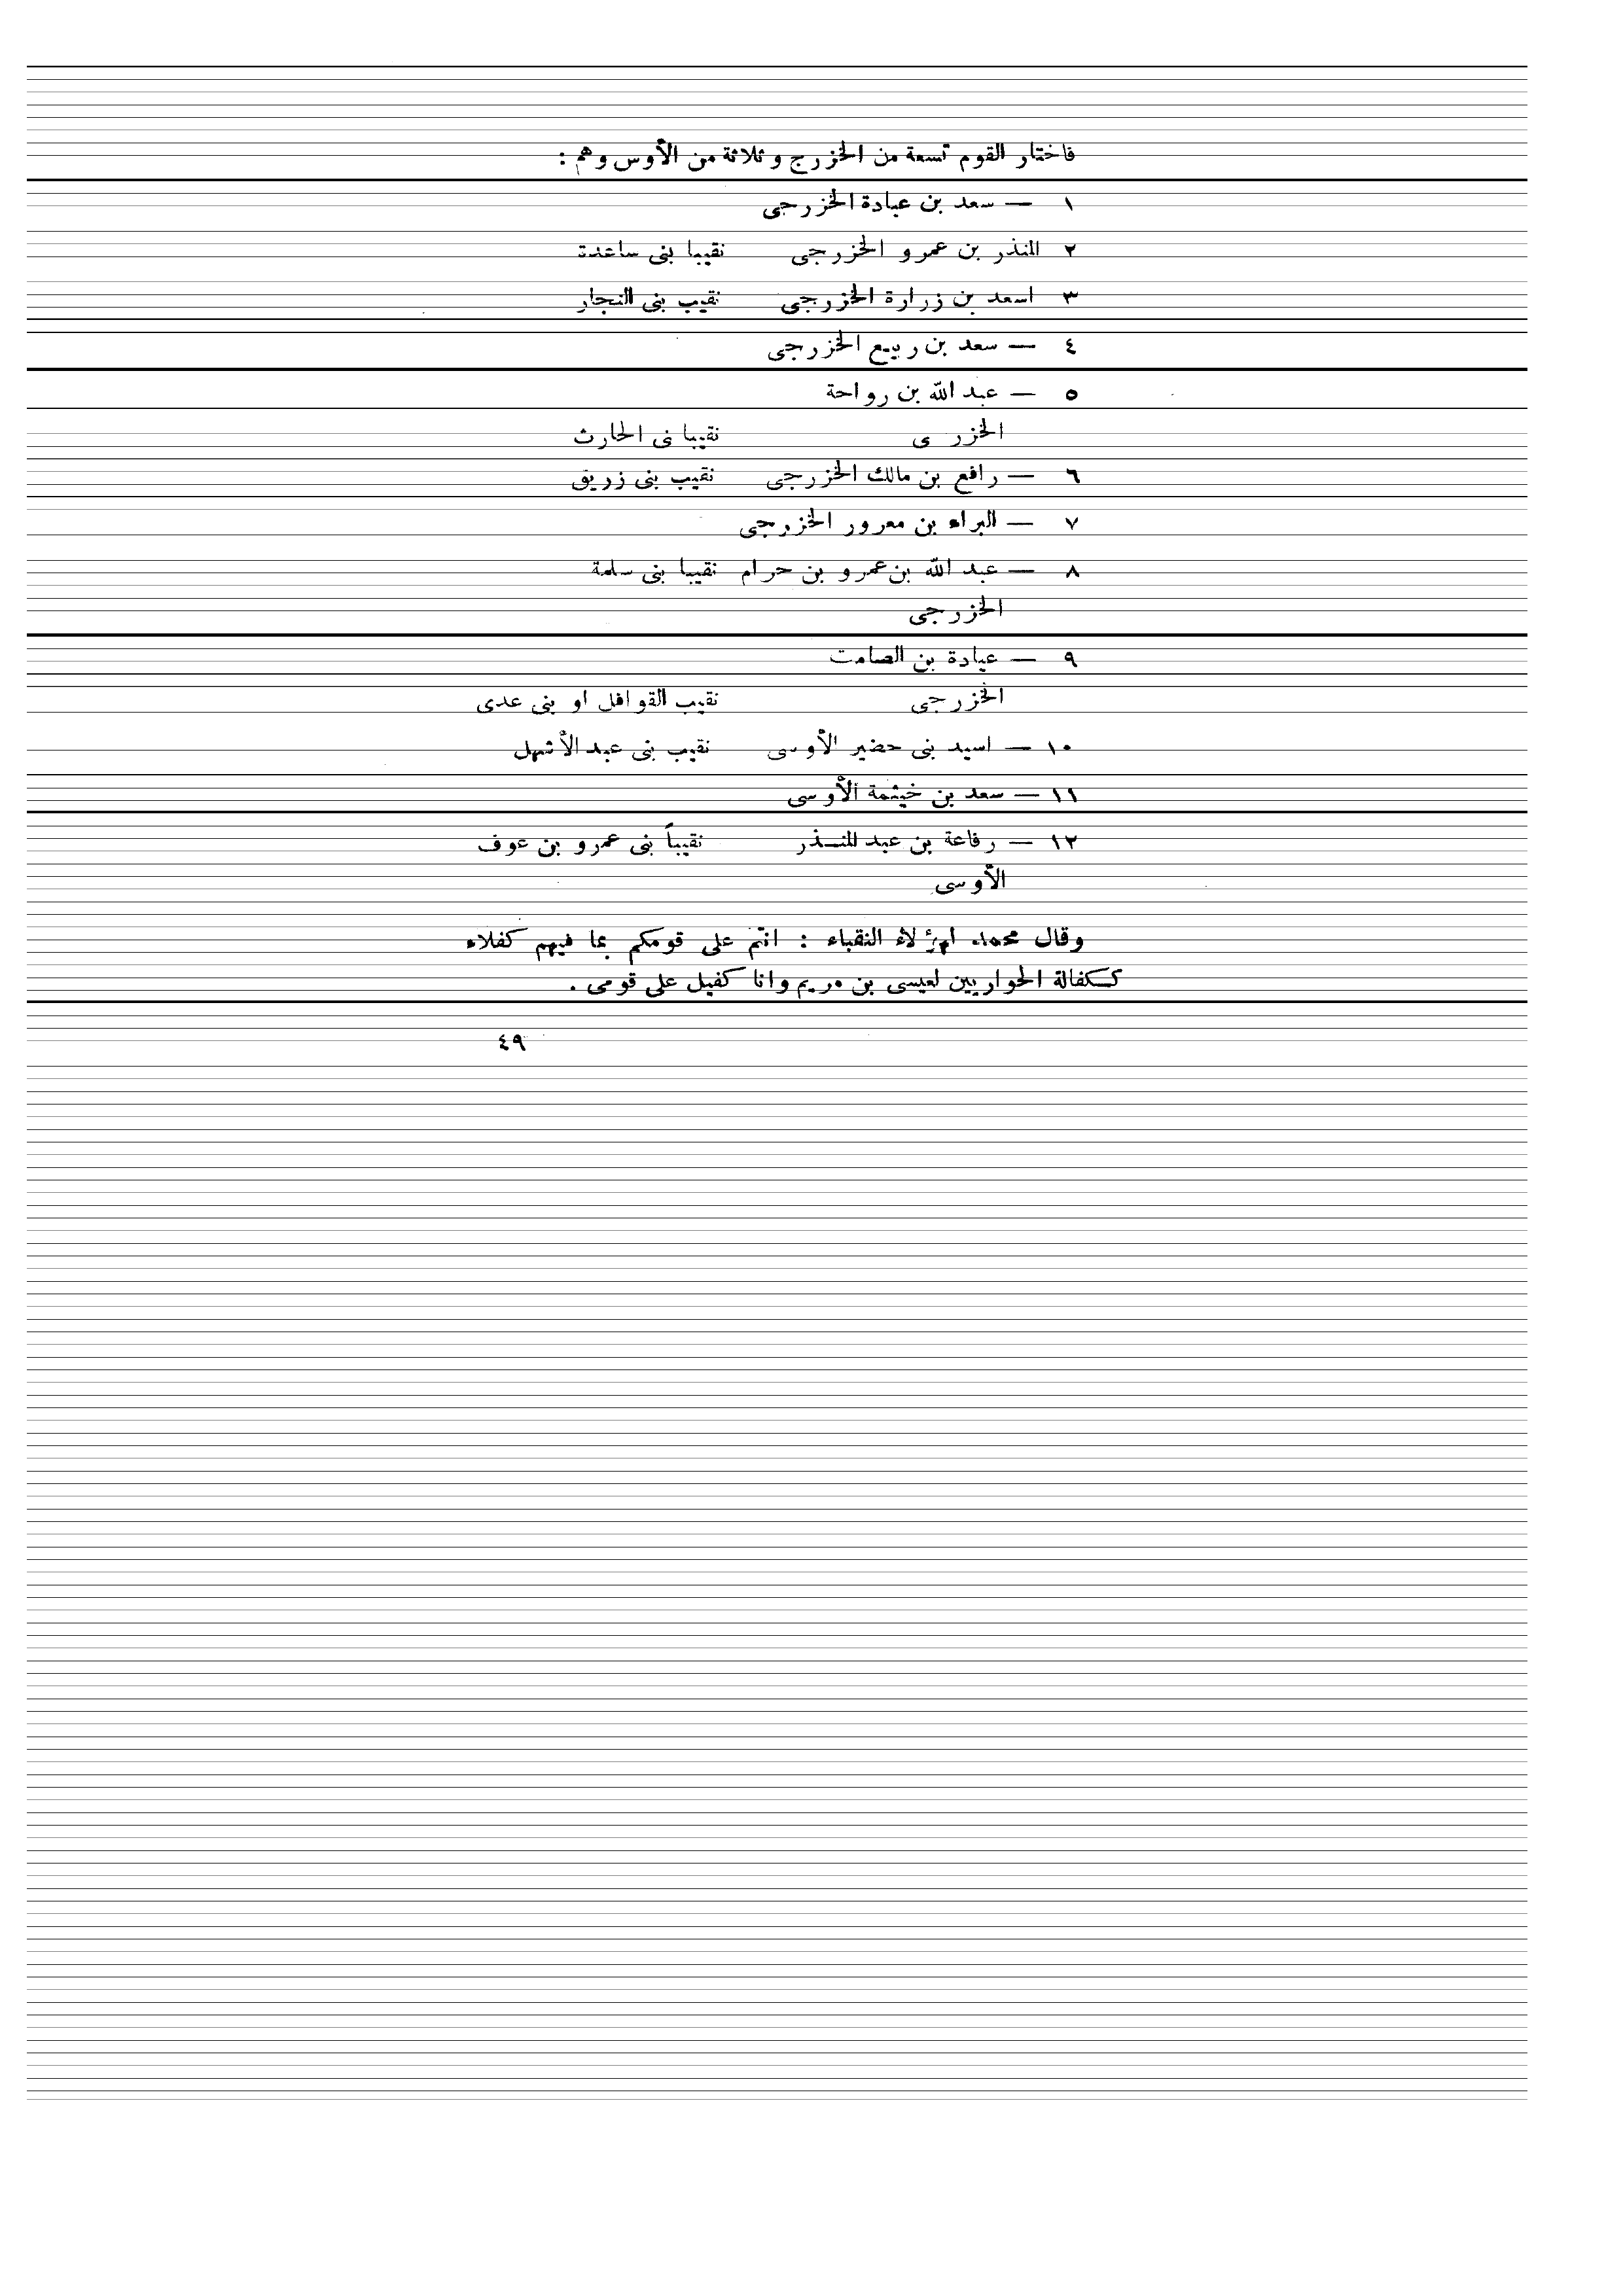 فاختار القوم تسعة من الخزرج وثلاثة من الأوس وهم :
١ — سعد بن عبادة الخزرجى
٢ المنذر بن عمرو الخزرجى نقيبا بنى ساعدة
٣ اسعد بن زرارة الخزرجى نقيب بنى النجار
٤ — سعد بن ربيع الخزرجى
٥ — عبد الله بن رواحة
الخزر ى نقيبا نى الحارث
٦ — رافع بن مالك الخزرجى نقيب بنى زريق
٧ — البراء بن معرور الخزرجى
٨ — عبد الله بن عمرو بن حرام نقيبا بنى سلمة
الخزرجى
٩ — عبادة بن الصامت
الخزرجى نقيب القوافل او بنى عدى
١٠ — اسيد بنى حضير الأوسى نقيب بنى عبد الأشهل
١١ — سعد بن خيثمة الأوسى
١٢ — رفاعة بن عبد المنذر نقيباً بنى عمرو بن عوف
الأوسى
وقال محمد النقباء : انتم على قومكم بما فيهم كفلاء
ككفالة الحواريين لعيسى بن مريم وانا كفيل على قومى .
٤٩